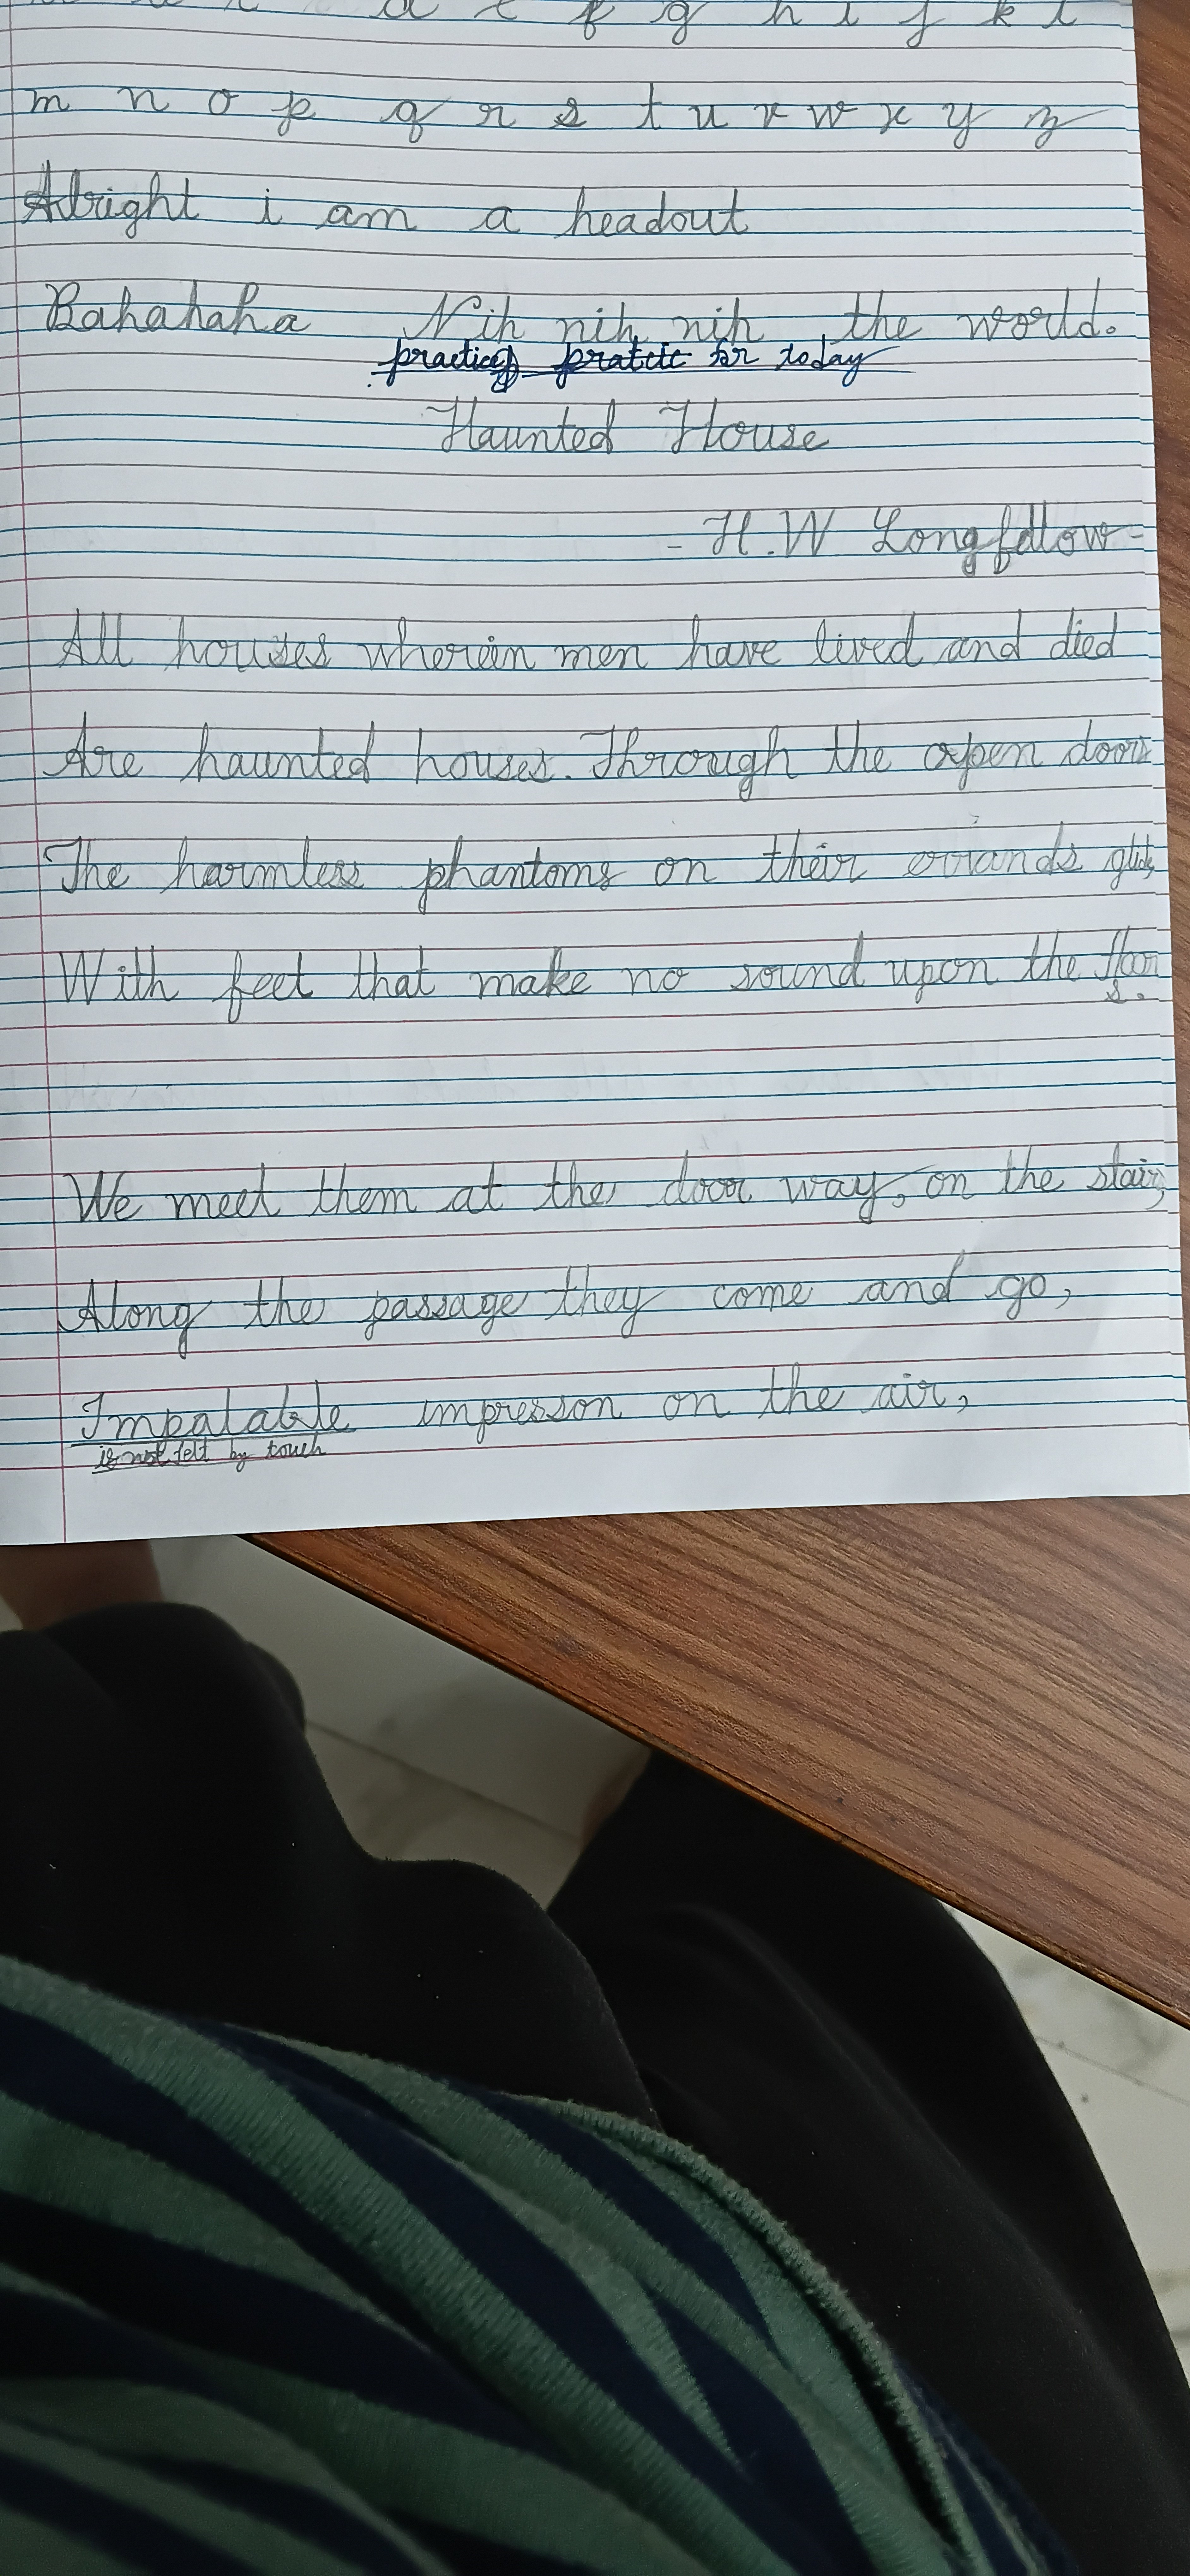 d e f g h i j k l
m n o p q r s t u v w x y z
Alright i am a headout
Bahahaha Nih nih nih the world.
practice for today
Haunted House
- H.W Longfellow-
All houses wherein men have lived and died
Are haunted houses. Through the open doors
The harmless phantoms on their errands glide,
With feet that make no sound upon the floor
s.
We meet them at the door way, on the stair,
Along the passage they come and go,
Impalable impresson on the air,
is not felt by touch